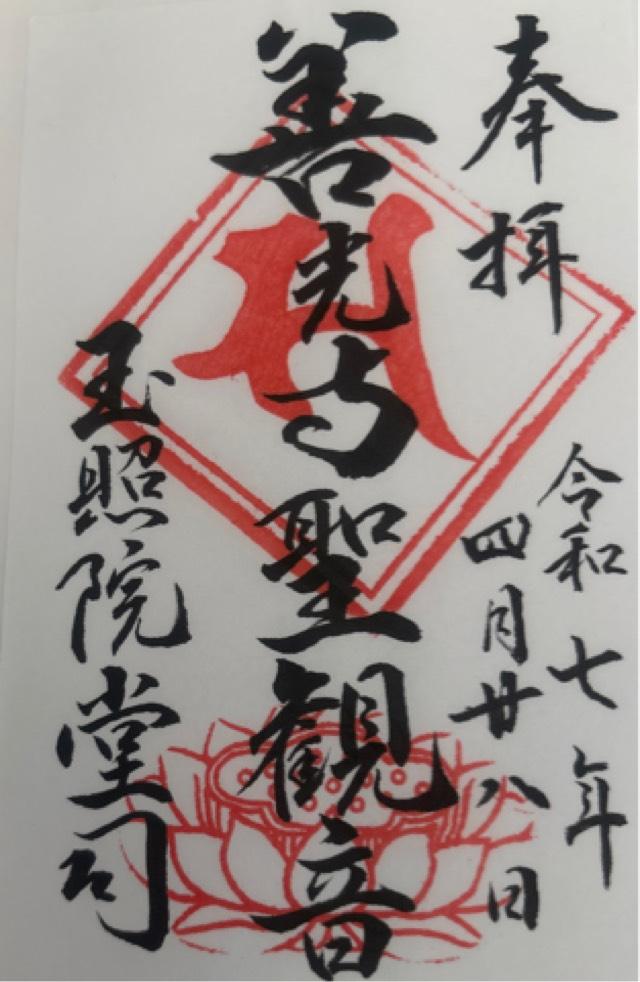 奉拝
令和七年
四月廿八日
善光寺聖観音
玉照院堂司